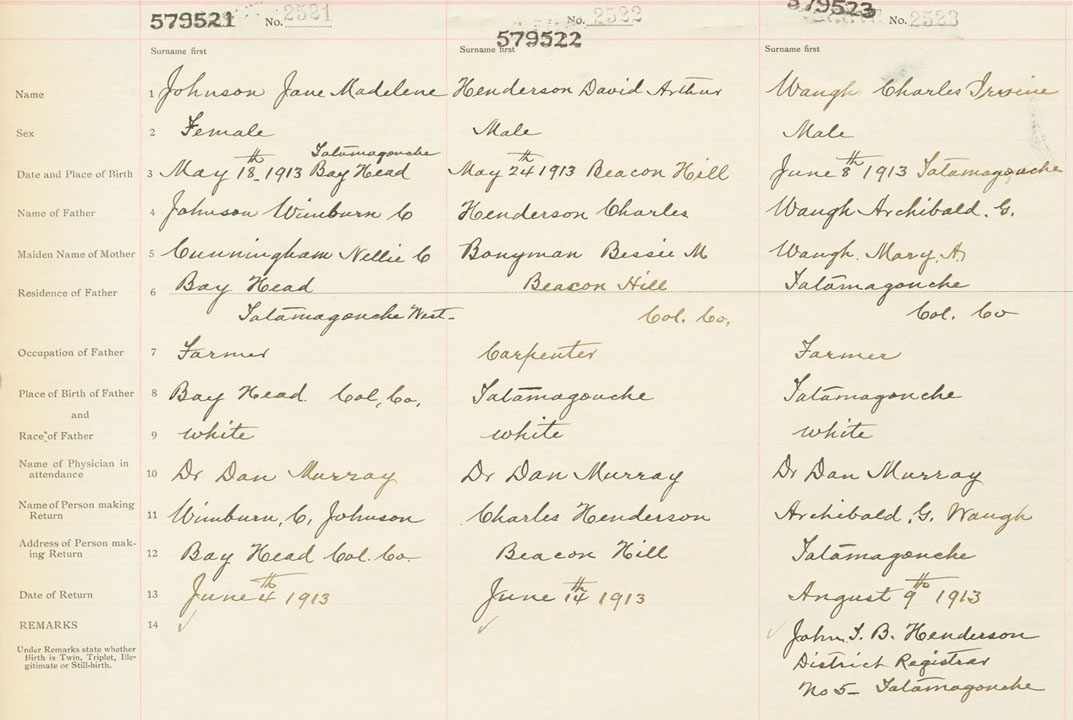 579521 No. 2521 No. 2522 579523 No. 2523
579522
Surname first Surname first Surname first
Name 1 Johnson Jane Madelene Henderson David Arthur Waugh Charles Irvine
Sex 2 Female Male Male
Tatamagouche
Date and Place of Birth 3 May 18th 1913 Bay Head May 24th 1913 Beacon Hill June 8th 1913 Tatamagouche
Name of Father 4 Johnson Wimburn C Henderson Charles Waugh Archibald. G.
Maiden Name of Mother 5 Cunningham Nellie C Bonyman Bessie M Waugh. Mary. A.
Residence of Father 6 Bay Head Beacon Hill Tatamagouche
Tatamagouche West- Col. Co. Col. Co
Occupation of Father 7 Farmer Carpenter Farmer
Place of Birth of Father 8 Bay Head. Col. Co. Tatamagouche Tatamagouche
and
Race of Father 9 white white white
Name of Physician in
attendance 10 Dr Dan Murray Dr Dan Murray Dr Dan Murray
Name of Person making
Return 11 Wimburn. C. Johnson Charles Henderson Archibald. G. Waugh
Address of Person mak-
ing Return 12 Bay Head Col. Co. Beacon Hill Tatamagouche
Date of Return 13 June 4th 1913 June 14th 1913 August 9th 1913
REMARKS 14 John. T. B. Henderson
Under Remarks state whether
Birth is Twin, Triplet, Ille-
gitimate or Still-birth.
District Registrar
No 5- Tatamagouche